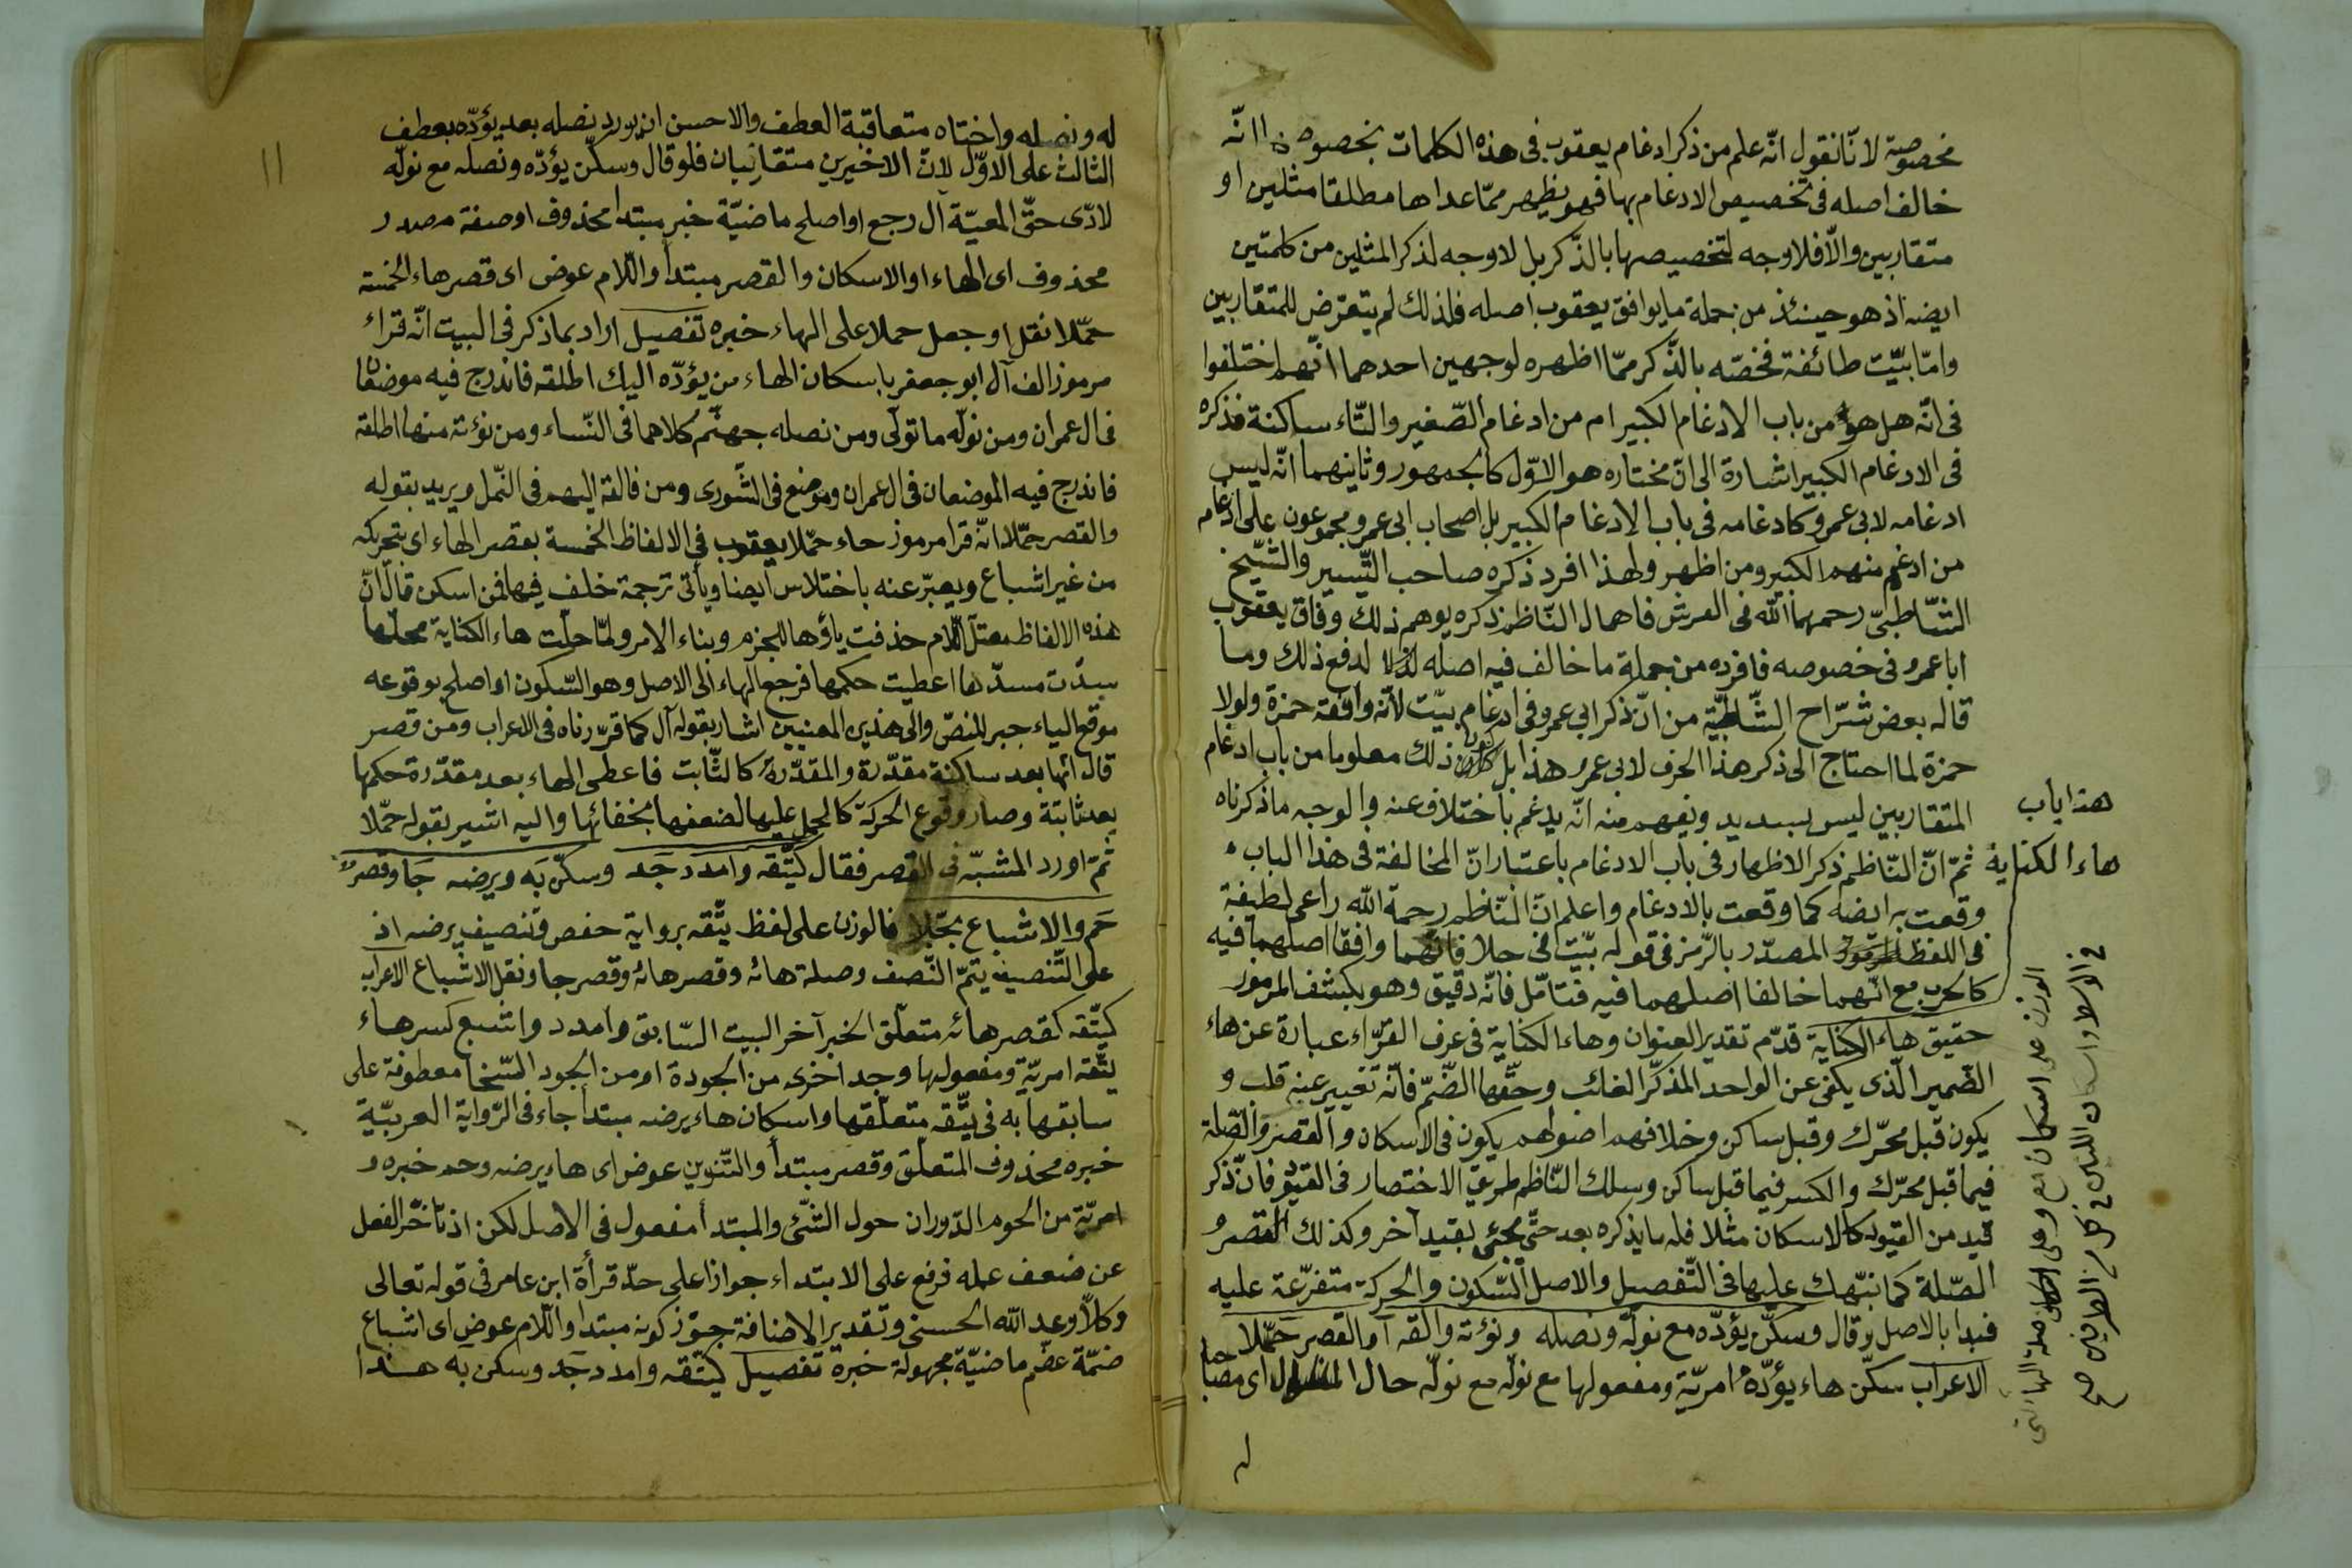 مخصوصة لانّا نقول انّه علم من ذكر ادغام يعقوب فى هذه الكلمات بخصوصها انّه
خالف اصله فى تخصيص الادغام بها فهو يظهر ممّا عداها مطلقا مثلين او
متقاربين والّا فلا وجه لتخصيصها بالذّكر بل لا وجه لذكر المثلين من كلمتين
ايضا اذ هو حينئذ من جملة ما يوافق يعقوب اصله فلذلك لم يتعرّض للمتقاربين
وامّا بيّت طائفة فخصّه بالذّكر ممّا اظهره لوجهين احدهما انّهم اختلفوا
فى انّه هل هو من باب الادغام الكبير ام من ادغام الصّغير والتّاء ساكنة فذكره
فى الادغام الكبير اشارة الى انّ مختاره هو الاوّل كالجمهور وثانيهما انّه ليس
ادغامه لابى عمرو كادغامه فى باب الادغام الكبير بل اصحاب ابى عمرو مجموعون على ادغام
من ادغم منهم الكبير ومن اظهر ولهذا افرد ذكره صاحب التّيسير والشّيخ
الشّاطبىّ رحمهما الله فى الفرش فاهمال النّاظم ذكره يوهم ذلك وفاق يعقوب
ابا عمرو فى خصوصه فافرده من جملة ما خالف فيه اصله لدفع ذلك وما
قاله بعض شرّاح الشّاطبيّة من انّ ذكر ابى عمرو فى ادغام بيّت لانّه وافقه حمزة ولولا
حمزة لما احتاج الى ذكر هذا الحرف لابى عمرو هذا بل كان ذلك معلوما من باب ادغام
المتقاربين ليس بسديد ويفهم منه انّه يدغم باختلاف عنه والوجه ما ذكرناه
ثمّ انّ النّاظم ذكر الاظهار فى باب الادغام باعتبار انّ المخالفة فى هذا الباب
وقعت به ايضا كما وقعت بالادغام واعلم انّ النّاظم رحمه الله راعى لطيفة
فى اللفظ المصدّر بالرّمز فى قوله بيّت فى حلا فانّهما وافقا اصلهما فيه
كالحرب مع انّهما خالفا اصلهما فيه فتامّل فانّه دقيق وهو بكشف المرموز
حقيق هاء الكناية قدّم تقدير العنوان وهاء الكناية فى عرف القرّاء عبارة عن هاء
الضّمير الّذى يكنى عن الواحد المذكّر الغائب وحقّها الضّمّ فانّه تغيير عنه قلب و
يكون قبل محرّك وقبل ساكن وخلافهم اصولهم يكون فى الاسكان والقصر والصّلة
فيما قبل محرّك والكسر فيما قبل ساكن وسلك النّاظم طريق الاختصار فى القيود فانّ ذكر
قيد من القيود كالاسكان مثلا فله ما يذكره بعد حتّى يجئ بقيد آخر وكذلك القصر و
الصّلة كما ننبّهك عليها فى التّفصيل والاصل السّكون والحركة متفرّعة عليه
فبدا بالاصل وقال وسكّن يؤدّه مع نولّه ونصله ونؤته والقه آ والقصر حمّلا
الاعراب سكّن هاء يؤدّه امريّة ومفعولها مع نولّه مع نولّه حال اى مصاحبا
له
هذا باب
هاء الكناية
له ونصله واختاه متعاقبة العطف والاحسن ان يورد نصله بعد يؤدّه بعطف
الثالث على الاوّل لانّ الاخيرين متقاربان فلو قال وسكّن يؤدّه ونصله مع نولّه
لادّى حقّ المعيّة آل رجع او اصلح ماضيّة خبر مبتدا محذوف او صفة مصدر
محذوف اى الهاء او الاسكان والقصر مبتدأ واللّام عوض اى قصر هاء الخمسة
حمّلا نقل او جعل حملا على الهاء خبره تفصيل اراد بما ذكر فى البيت انّه قراء
مرموز الف آل ابو جعفر باسكان الهاء من يؤدّه اليك اطلقه فاندرج فيه موضعان
فى ال عمران ومن نولّه ما تولّى ومن نصله جهنّم كلاهما فى النّساء ومن نؤته منها اطلقه
فاندرج فيه الموضعان فى ال عمران وموضع فى الشّورى ومن فالقه اليهم فى النّمل ويريد بقوله
والقصر حمّلا انّه قرا مرموز حاء حمّلا يعقوب فى الالفاظ الخمسة بقصر الهاء اى بتحريكه
من غير اشباع ويعبّر عنه باختلاس ايضا وياتى ترجمة خلف فيها فمن اسكن قال انّ
هذه الالفاظ معتلّ اللّام حذفت ياؤها للجزم وبناء الامر ولمّا حلّت هاء الكناية محلّها
سدّت مسدّها اعطيت حكمها فرجع الهاء الى الاصل وهو السّكون او اصلح بوقوعه
موقع الياء جبر للنصّ والى هذين المعنيين اشار بقوله آل كما قرّرناه فى الاعراب ومن قصر
قال انّها بعد ساكنة مقدّرة والمقدّرة كالثّابت فاعطى الهاء بعد مقدّرة حكمها
بعد ثابتة وصار وقوع الحركة كالحمل عليها لضعفها بخفائها واليه اشير بقوله حمّلا
ثمّ اورد المشبّه فى القصر فقال كيتّقه وامدد جد وسكّن به ويرضه جا وقصر
حم والاشباع بجّلا فالوزن على لفظ يتّقه برواية حفص وتنصيف يرضه اذ
على التّنصيف يتمّ النّصف وصلة هائه وقصر هائه وقصر جا ونقل الاشباع الاعراب
كيتّقه كقصر هائه متعلّق الخبر آخر البيت السّابق وامدد واشبع كسر هاء
يتّقه امريّة ومفعولها وجد اخرى من الجودة او من الجود السّخا معطوفة على
سابقها به فى يتّقه متعلّقها واسكان هاء يرضه مبتدأ جاء فى الرّواية العربيّة
خبره محذوف المتعلّق وقصر مبتدأ والتّنوين عوض اى هاء يرضه وحم خبره و
امريّة من الحوم الدّوران حول الشّئ والمبتدأ مفعول فى الاصل لكن اذ تاخّر الفعل
عن ضعف عمله فرفع على الابتداء جوازا على حدّ قرأة ابن عامر فى قوله تعالى
وكلّا وعد الله الحسنى وتقدير الاضافة جوّز كونه مبتدا واللّام عوض اى اشباع
ضمّة عضّم ماضيّة مجهولة خبره تفصيل كيتّقه وامدد جد وسكن به هذا
١١